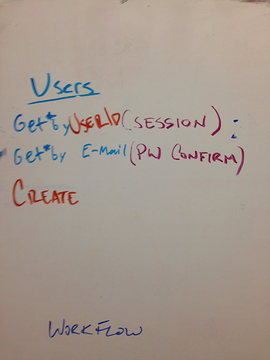 Users
Get*by UserID (SESSION) :
Get*by E-Mail (PW CONFIRM)
CREATE
WORKFLOW